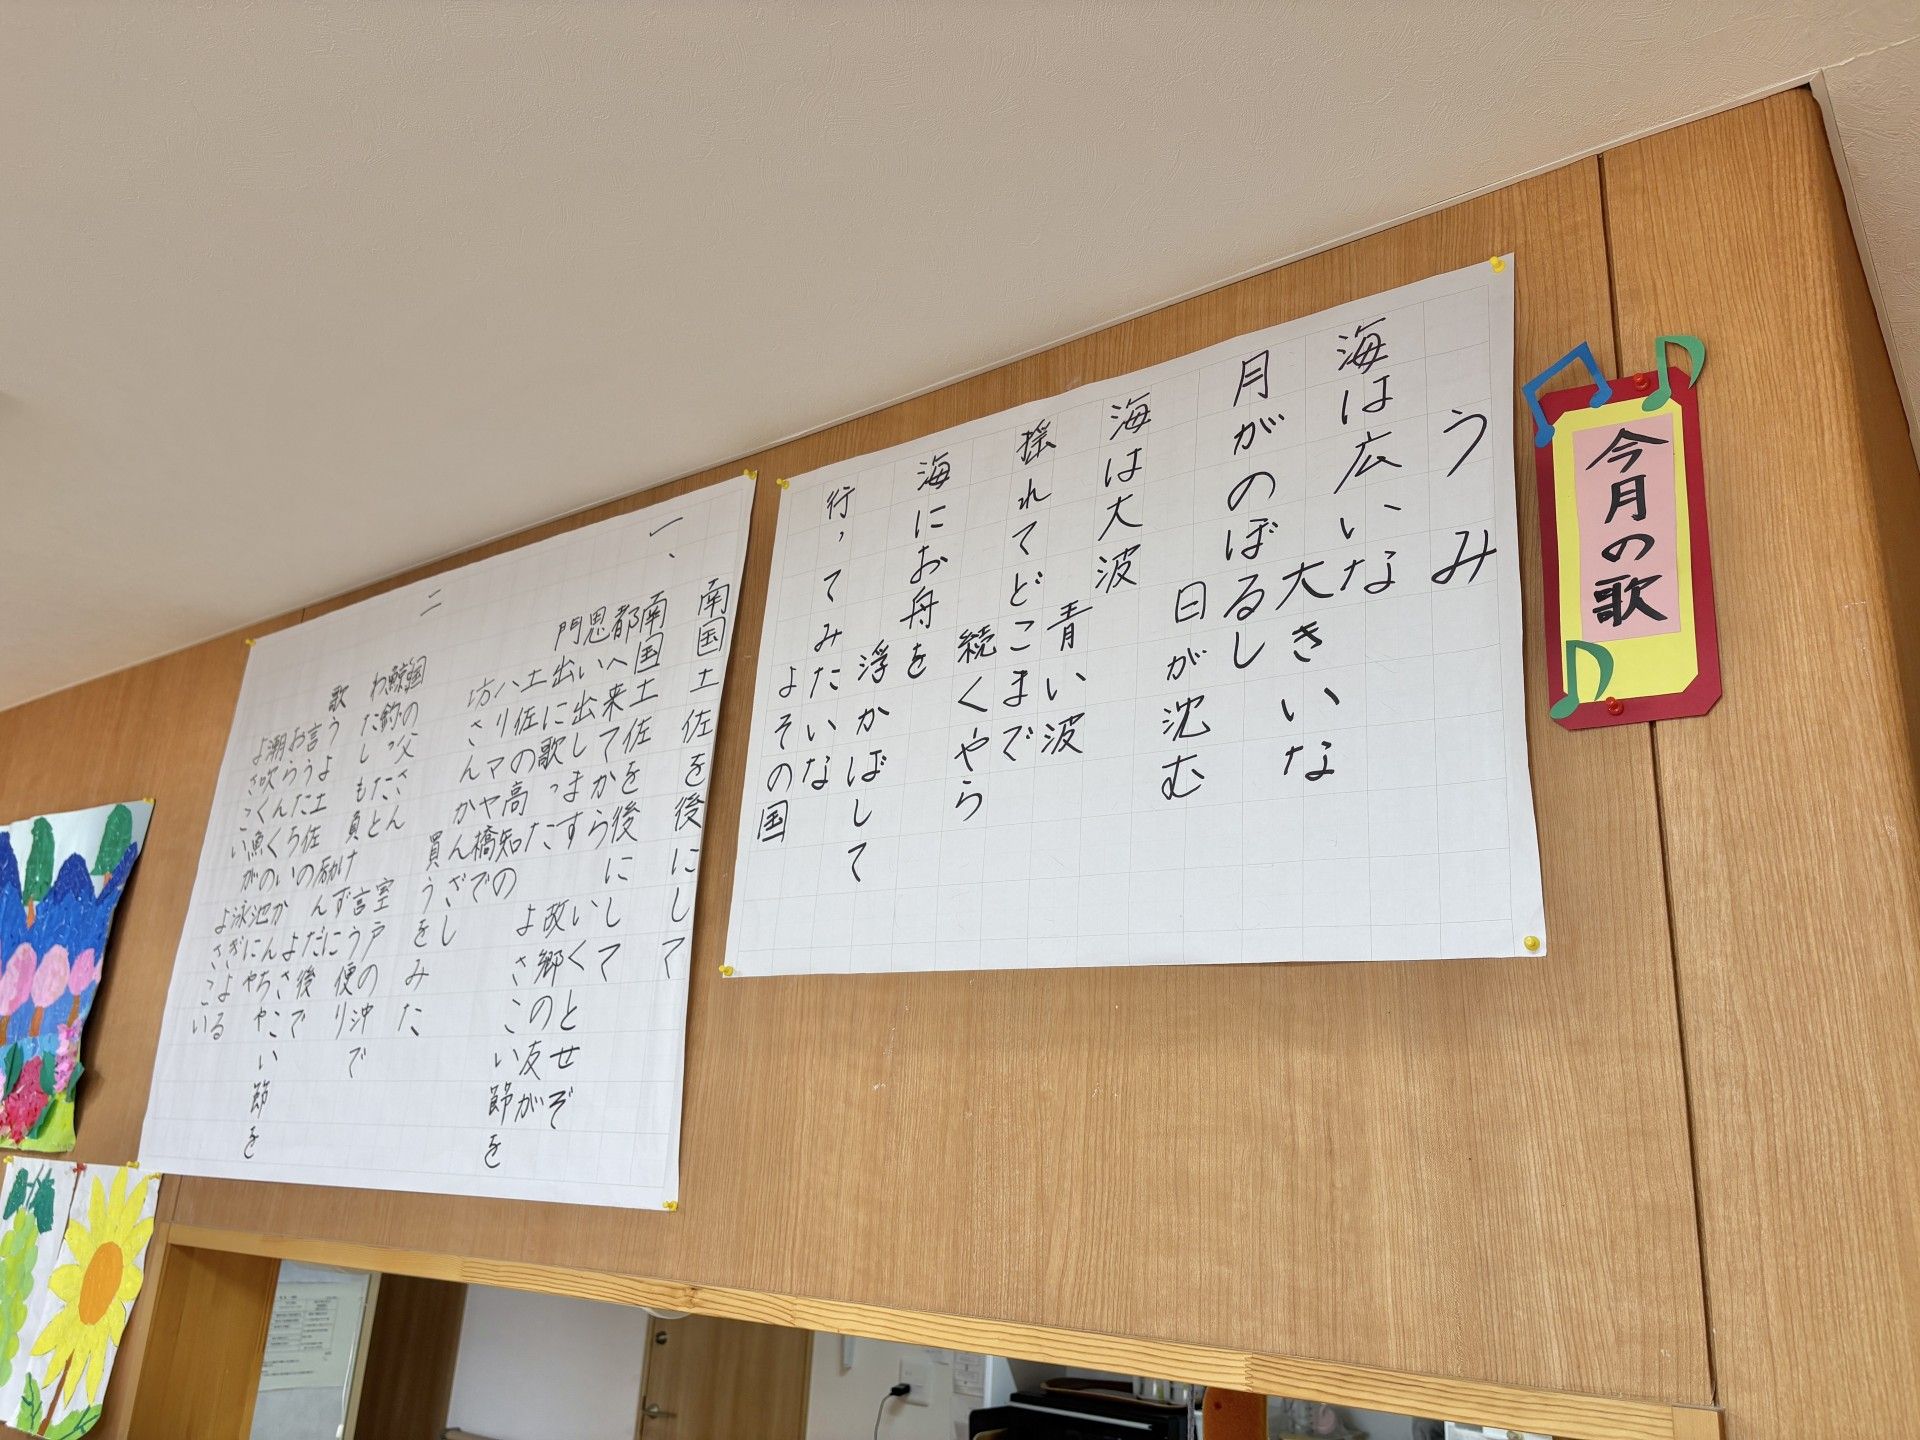 今月の歌
うみ
海は広いな
大きいな
月がのぼるし
日が沈む
海は大波
青い波
揺れてどこまで
続くやら
海にお舟を
浮かばして
行ってみたいな
よその国
南国土佐を後にして
一、
南国土佐を後にして
都へ来てから いくとせぞ
思い出します 故郷の友が
門出に歌った よさこい節を
土佐の高知の
ハリマヤ橋で
坊さんかんざし
買うをみた
二
国の父さん 室戸の沖で
鯨釣ったと 言う便り
わたしも負けずに 励んだ後で
歌うよ土佐の よさこい節を
言うたちいかんちや
おらんくの池にや
潮吹く魚が 泳ぎよる
よさこい よさこい